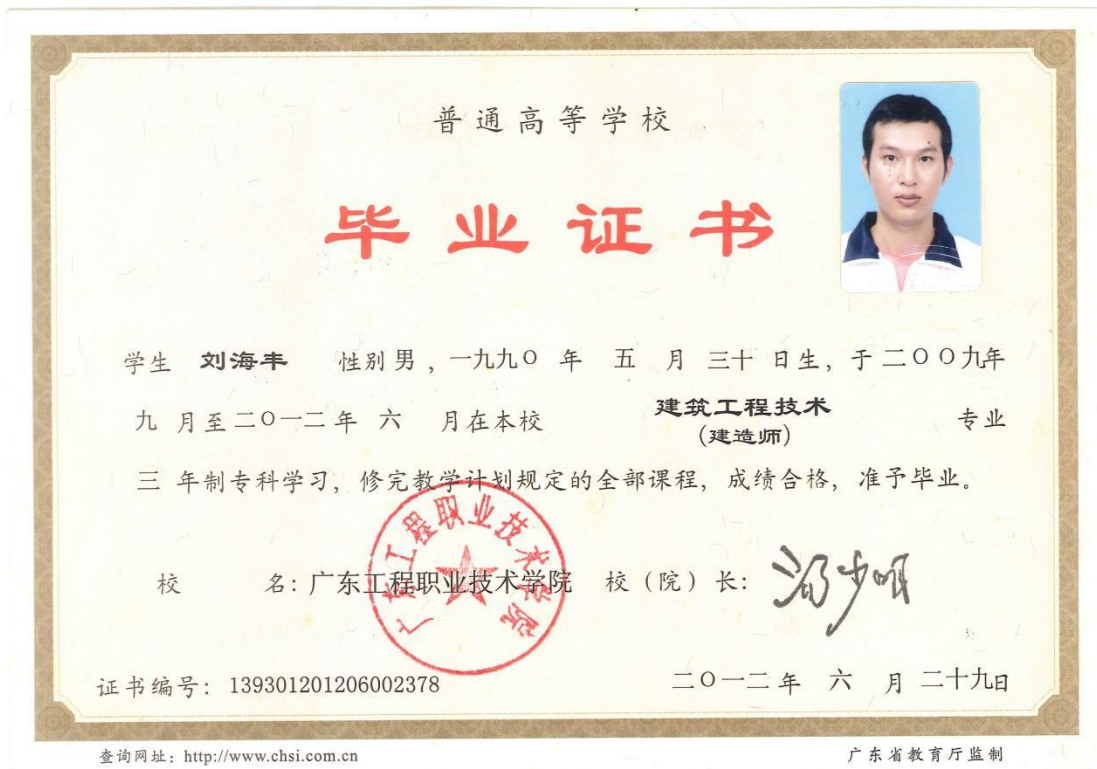 普通高等学校
毕业证书
学生 刘海丰 性别 男 ，一九九〇 年 五 月 三十 日生，于二〇〇九年
九 月至二〇一二年 六 月在本校 建筑工程技术 专业
(建造师)
三 年制专科学习，修完教学计划规定的全部课程，成绩合格，准予毕业。
广东工程职业技术学院
校 名：广东工程职业技术学院 校（院）长：
证书编号：139301201206002378 二〇一二年 六 月 二十九日
查询网址：http://www.chsi.com.cn 广东省教育厅监制